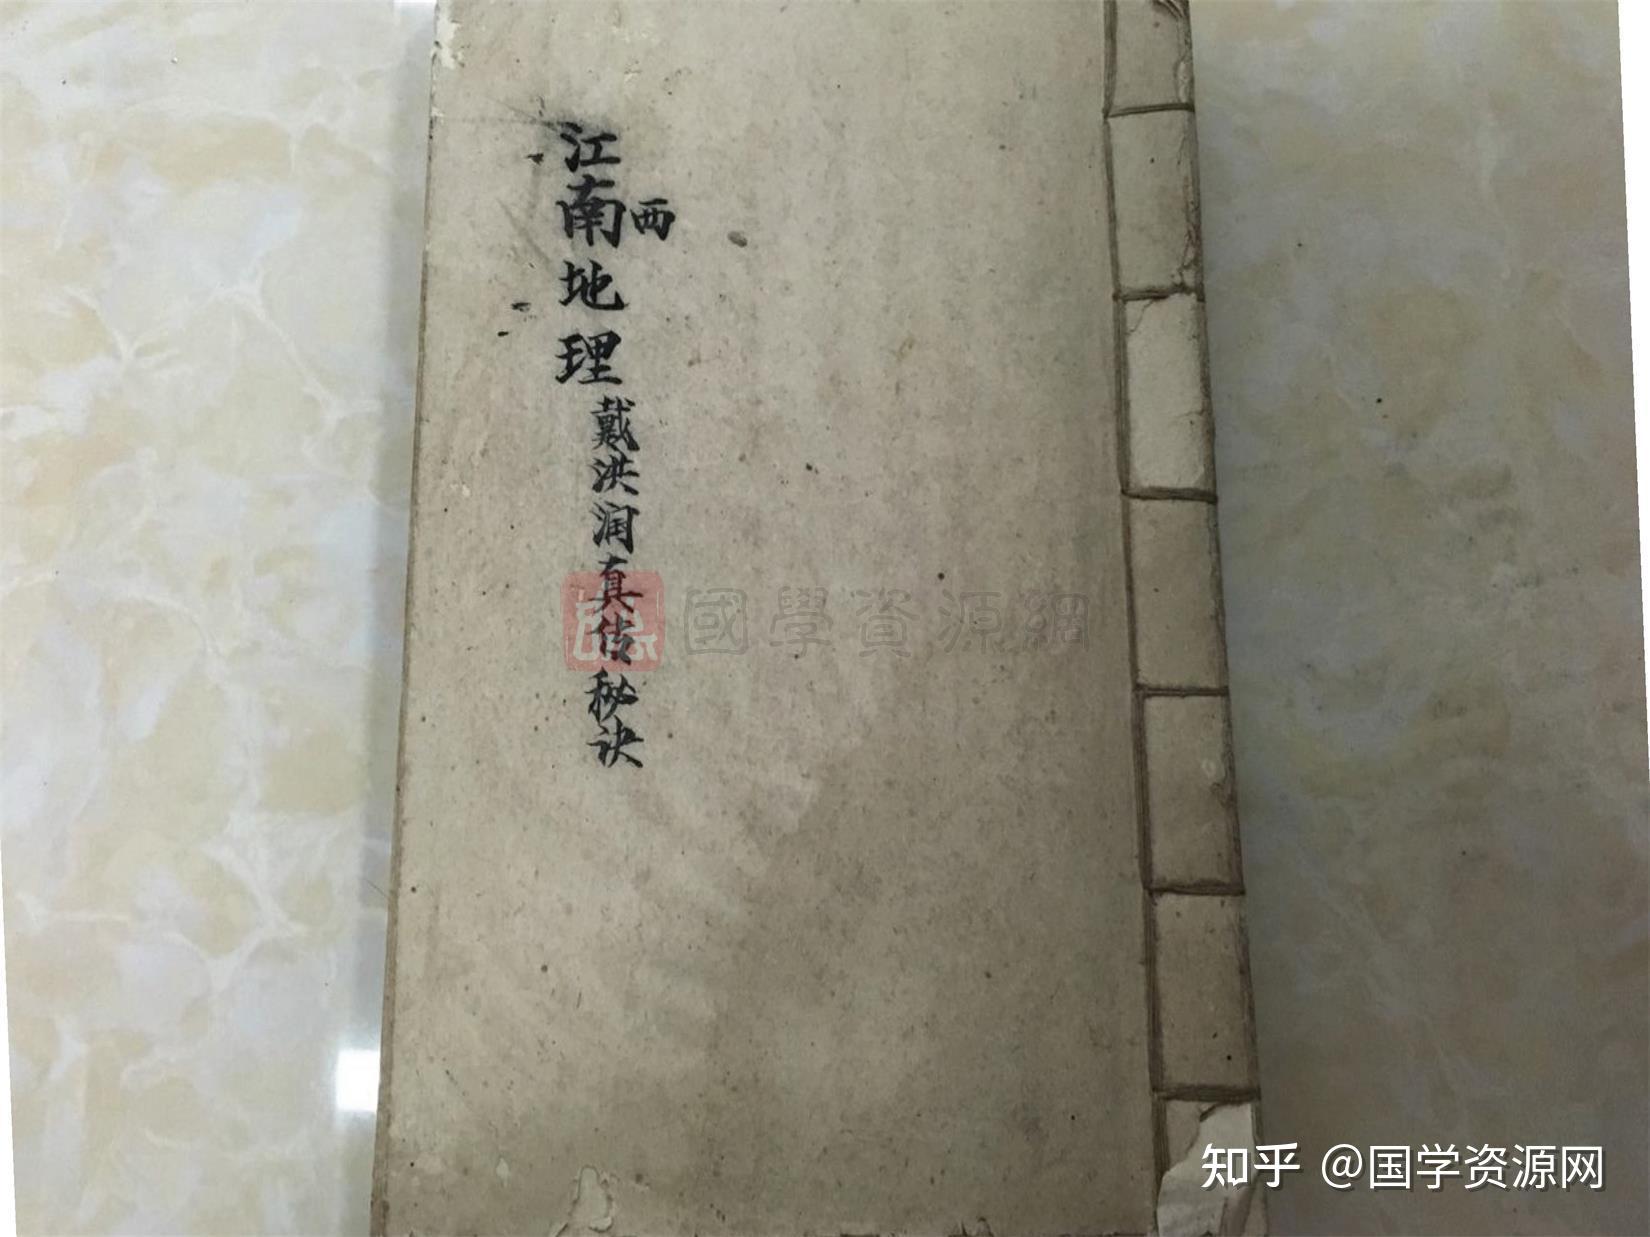 江南地理
西
戴洪润真传秘诀
國學資源網
知乎 @国学资源网